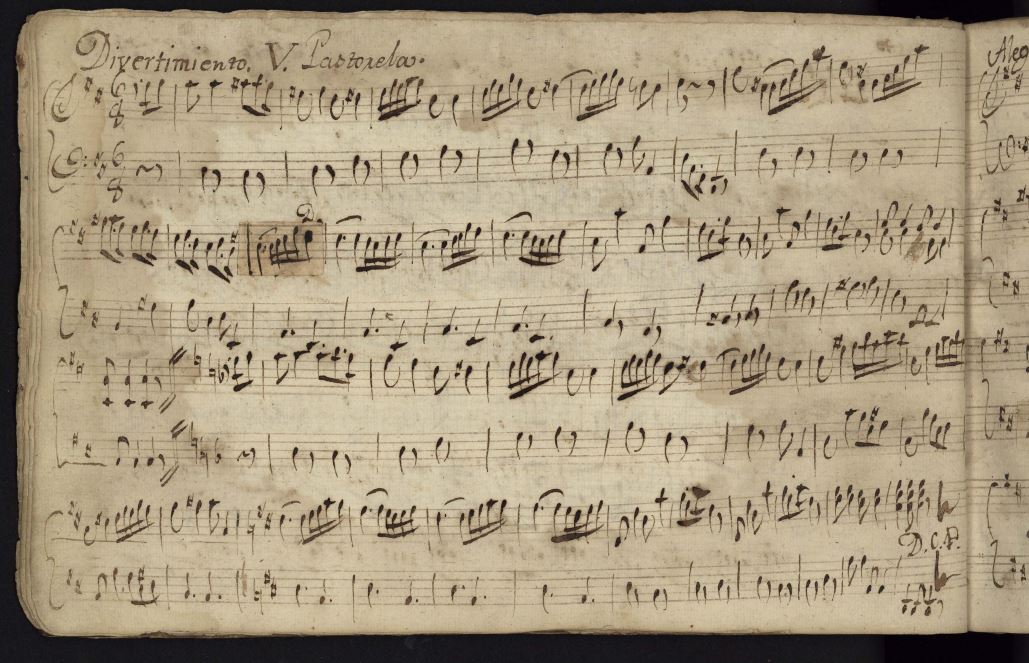 Divertimiento. V. Pastorela.
6
8
6
8
D.
D. C. P.
Aleg